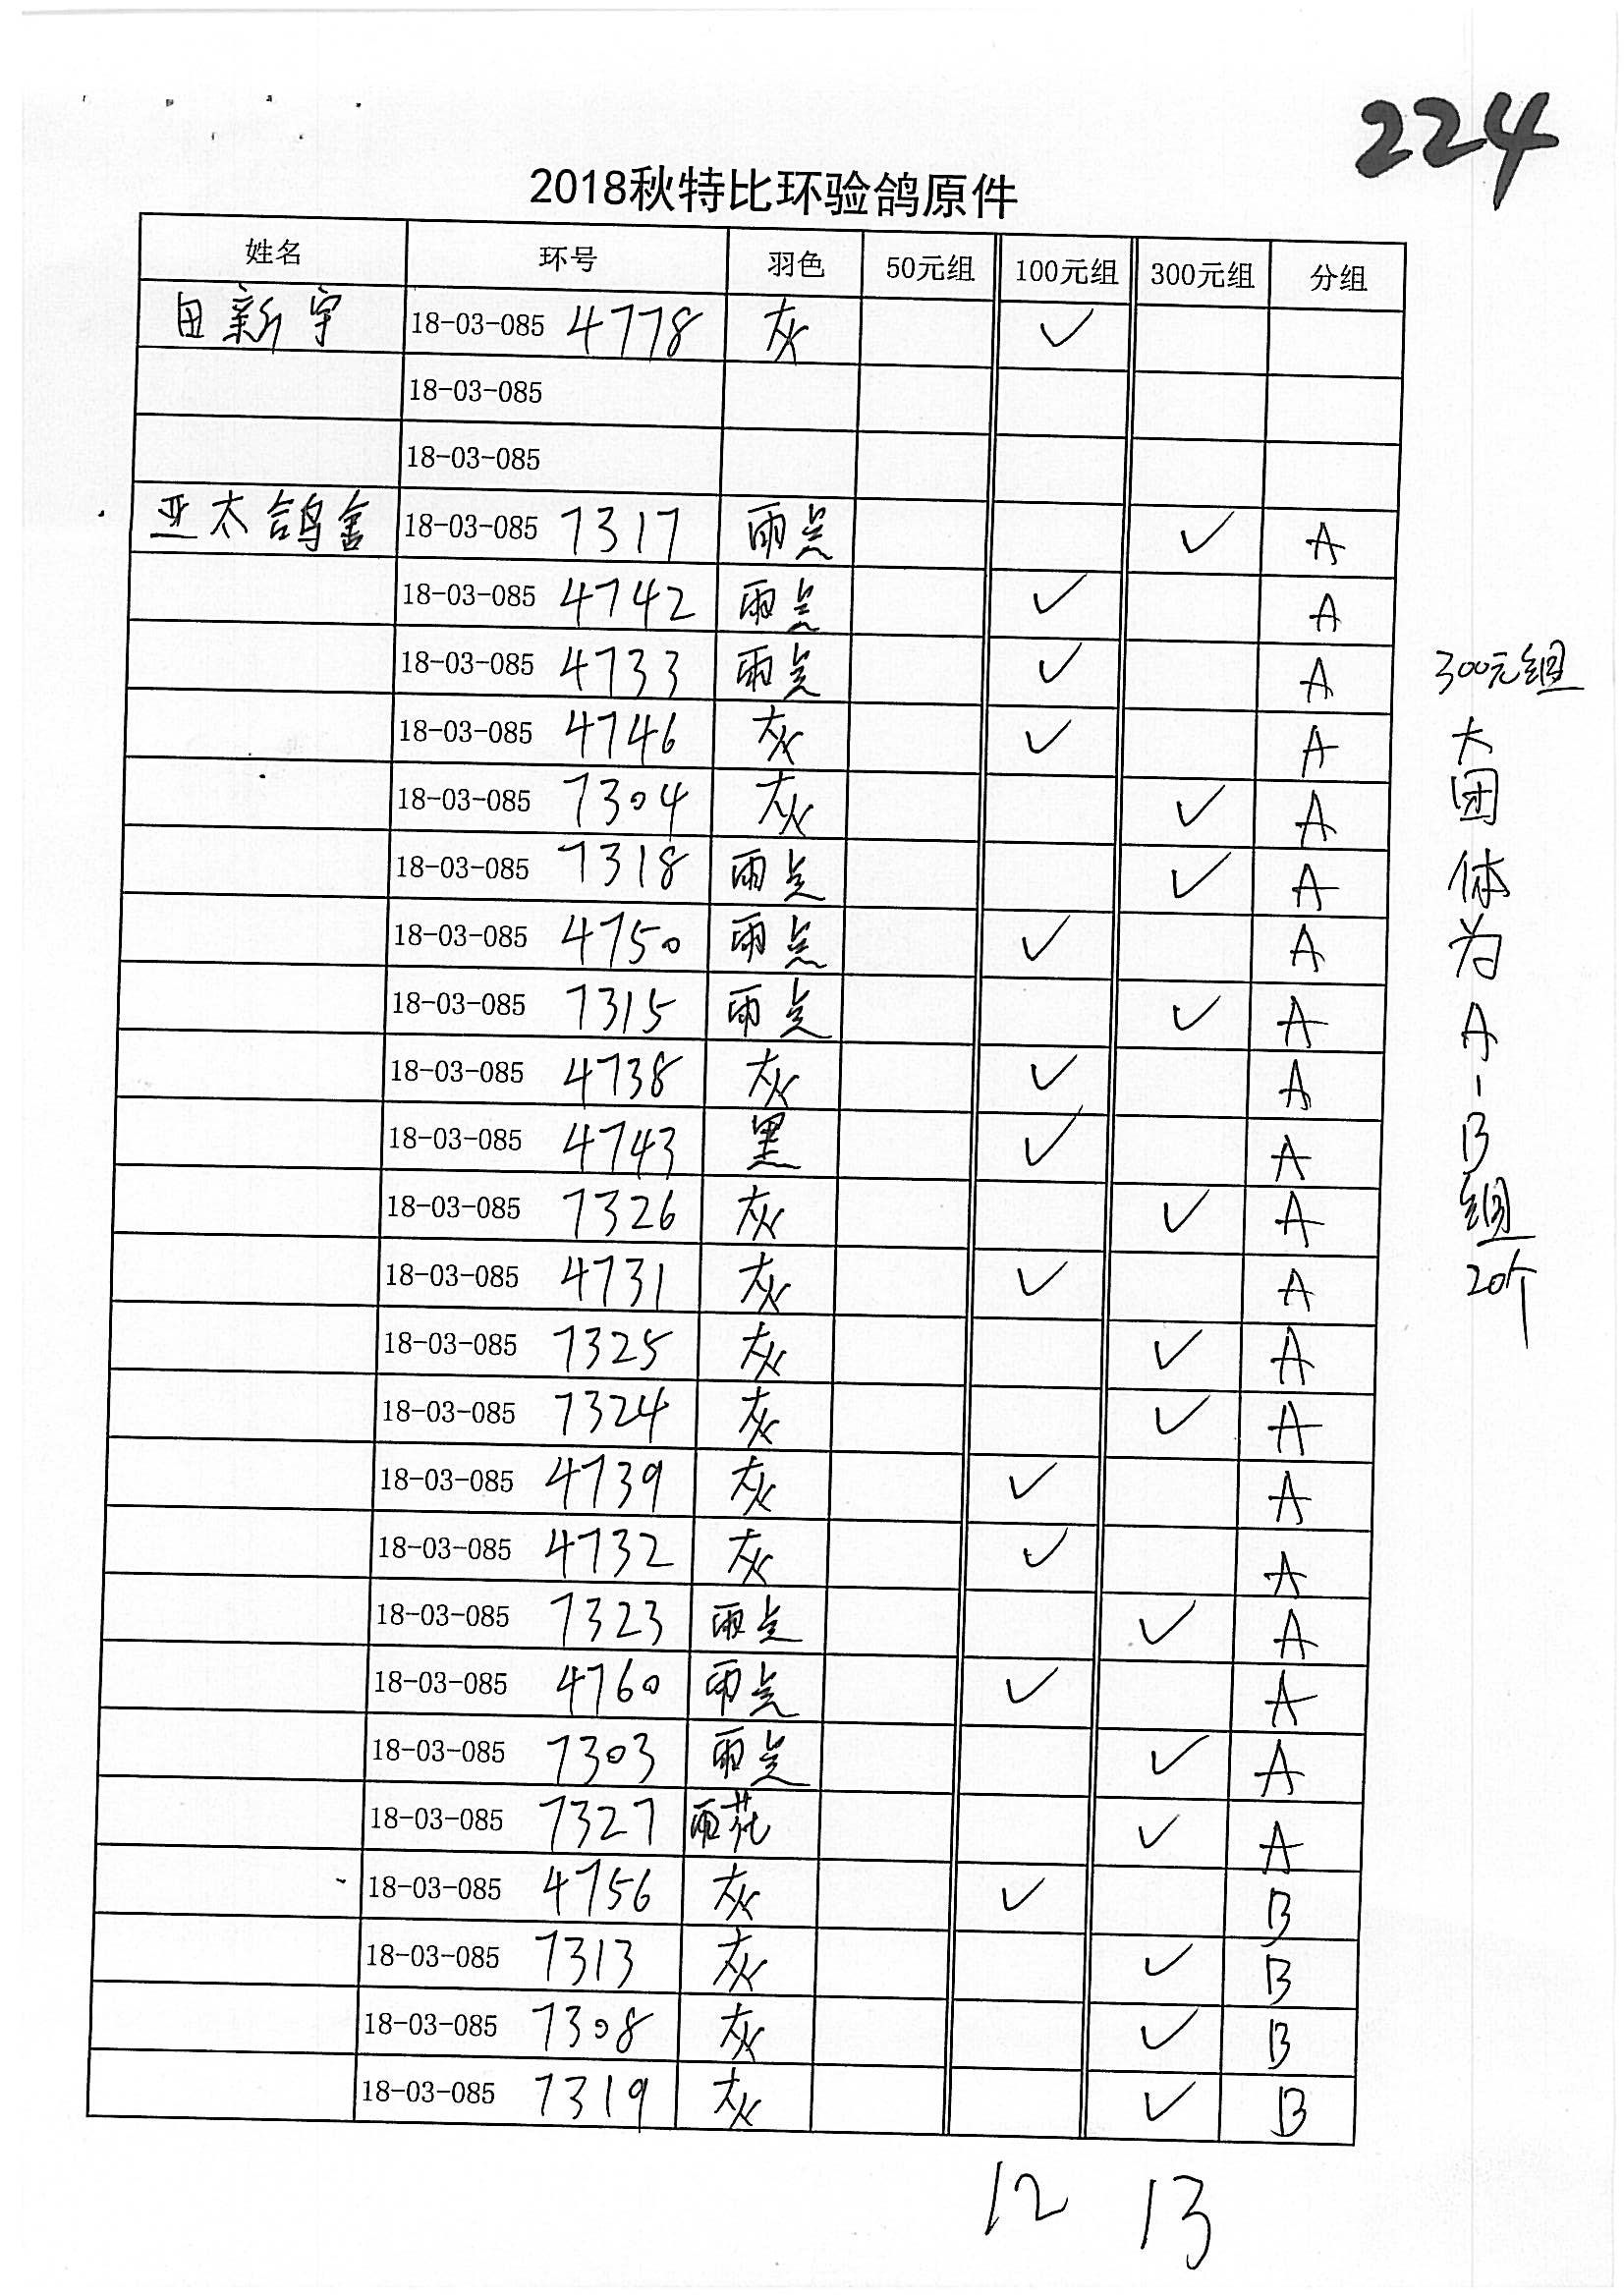 224
2018秋特比环验鸽原件
姓名 环号 羽色 50元组 100元组 300元组 分组
田新宇 18-03-085 4778 灰 ✓
18-03-085
18-03-085
亚太鸽舍 18-03-085 7317 雨点 ✓ A
18-03-085 4742 雨点 ✓ A
18-03-085 4733 雨点 ✓ A
18-03-085 4746 灰 ✓ A
18-03-085 7304 灰 ✓ A
18-03-085 7318 雨点 ✓ A
18-03-085 4750 雨点 ✓ A
18-03-085 7315 雨点 ✓ A
18-03-085 4738 灰 ✓ A
18-03-085 4743 黑 ✓ A
18-03-085 7326 灰 ✓ A
18-03-085 4731 灰 ✓ A
18-03-085 7325 灰 ✓ A
18-03-085 7324 灰 ✓ A
18-03-085 4739 灰 ✓ A
18-03-085 4732 灰 ✓ A
18-03-085 7323 雨点 ✓ A
18-03-085 4760 雨点 ✓ A
18-03-085 7303 雨点 ✓ A
18-03-085 7327 雨花 ✓ A
18-03-085 4756 灰 ✓ B
18-03-085 7313 灰 ✓ B
18-03-085 7308 灰 ✓ B
18-03-085 7319 灰 ✓ B
12 13
300元组
大团体为A-B组
20个